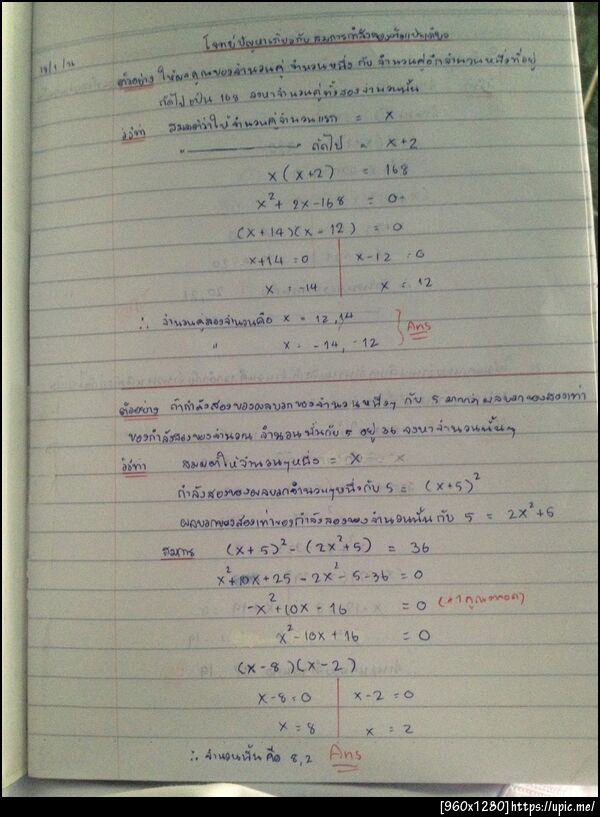 โจทย์ปัญหาเกี่ยวกับ สมการกำลังสองตัวแปรเดียว
ตัวอย่าง ให้ผลคูณของจำนวนคู่ จำนวนหนึ่ง กับ จำนวนคู่อีกจำนวนหนึ่งที่อยู่
ถัดไป เป็น 168 จงหาจำนวนคู่ทั้งสองจำนวนนั้น
วิธีทำ สมมติว่าให้ จำนวนคู่จำนวนแรก = x
" ถัดไป = x+2
x(x+2) = 168
x²+2x-168 = 0
(x+14)(x-12) = 0
x+14 = 0 x-12 = 0
x = -14 x = 12
∴ จำนวนคู่สองจำนวนคือ x = 12, 14
" x = -14, -12
Ans
ตัวอย่าง ถ้ากำลังสองของผลบวกของจำนวนหนึ่งๆ กับ 5 มากกว่า ผลบวกของสองเท่า
ของกำลังสองของจำนวน จำนวนนั้นกับ 5 อยู่ 36 จงหาจำนวนนั้นๆ
วิธีทำ สมมติให้จำนวนๆหนึ่ง = x
กำลังสองของผลบวกจำนวนๆหนึ่งกับ 5 = (x+5)²
ผลบวกของสองเท่าของกำลังสองของจำนวนนั้น กับ 5 = 2x²+5
สมการ (x+5)²-(2x²+5) = 36
x²+10x+25-2x²-5-36 = 0
-x²+10x-16 = 0 (-1 คูณตลอด)
x²-10x+16 = 0
(x-8)(x-2)
x-8 = 0 x-2 = 0
x = 8 x = 2
∴ จำนวนนั้น คือ 8, 2 Ans
[960x1280]https://upic.me/